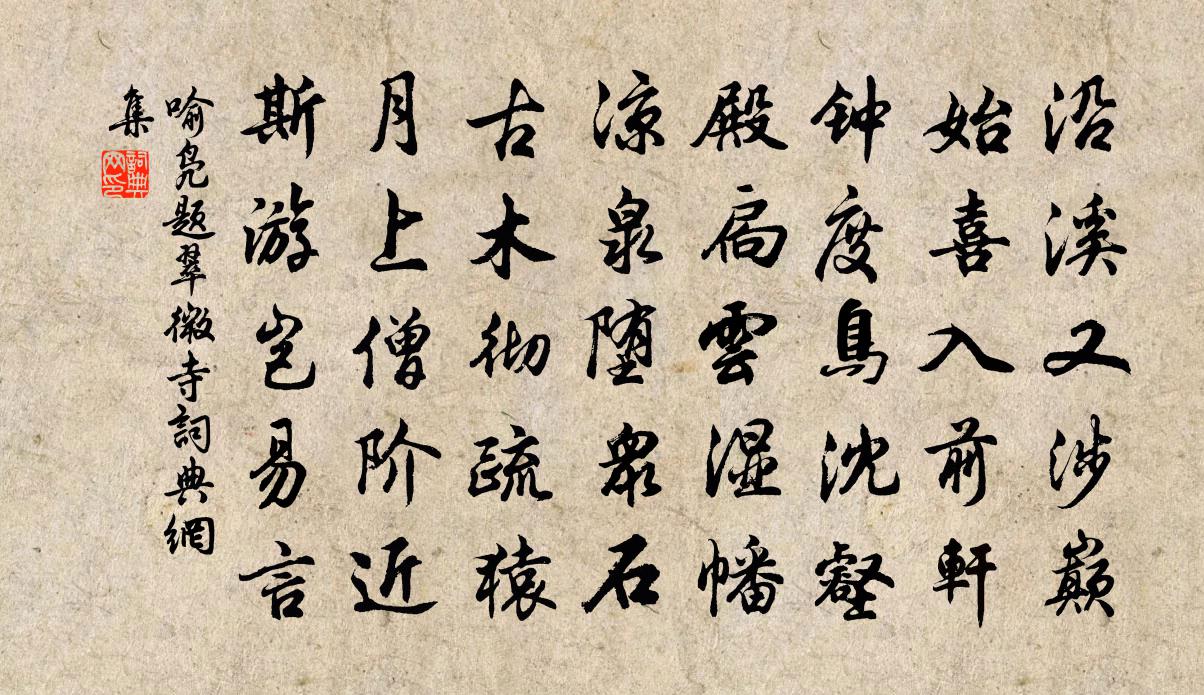 沿溪又涉巅
始喜入前軒
钟度鳥沈壑
殿扃雲湿幡
凉泉堕衆石
古木彻疏猿
月上僧阶近
斯游岂易言
喻凫题翠微寺詞典網
集
詞典网印